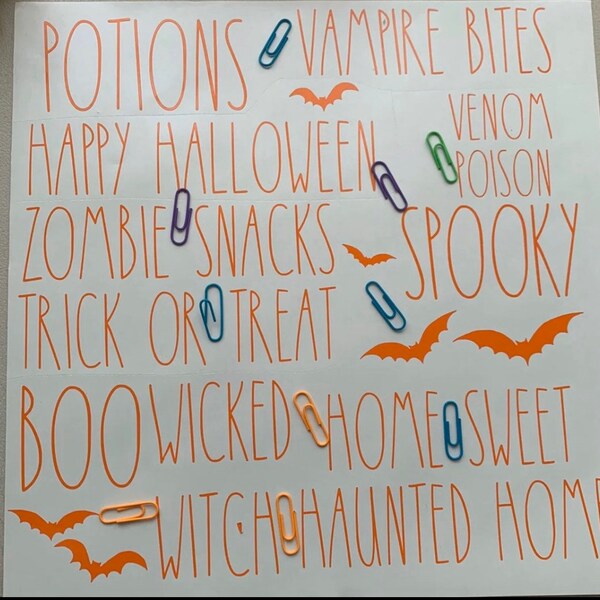 POTIONS VAMPIRE BITES
HAPPY HALLOWEEN
VENOM
POISON
ZOMBIE SNACKS
SPOOKY
TRICK OR TREAT
BOO WICKED HOME SWEET
WITCH HAUNTED HOME